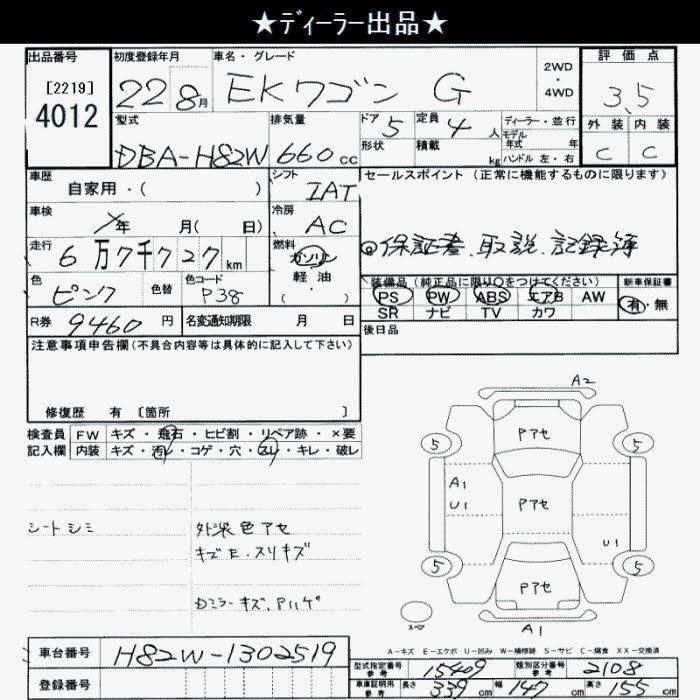 ★ディーラー出品★
出品番号
[2219]
4012
初度登録年月
22 8月
車名・グレード
EKワゴン G
2WD
・
4WD
評価点
3.5
外装 内装
C C
型式
DBA-H82W
排気量
660cc
ドア 5
形状
定員 4人
積載 kg
ディーラー・並行
モデル年式 年
ハンドル 左・右
車歴
自家用・( )
シフト
IAT
セールスポイント(正常に機能するものに限ります)
◎保証書、取説、記録簿
車検
年 月( 日)
冷房
AC
走行
6万7千727km
燃料
ガソリン
軽・油
( ・ )
色
ピンク
色替
色コード
P38
装備品(純正品に限り○をつけてください)
PS PW ABS エアB AW
SR ナビ TV カワ
新車保証書
有・無
R券 9460円
名変通知期限 月 日
後日品
注意事項申告欄(不具合内容等は具体的に記入して下さい)
修復歴 有 [箇所 ]
検査員
記入欄
FW キズ・飛石・ヒビ割・リペア跡・×要
内装 キズ・汚レ・コゲ・穴・スレ・キレ・破レ
シートシミ
外装色アセ
キズE.スリキズ
Dミラーキズ.Pハゲ
A2
Pアセ
5 5
A1
U1
Pアセ
U1
5 5
Pアセ
スペア
A1
A-キズ E-エクボ U-凹み W-補修跡 S-サビ C-腐食 XX-交換済
車台番号
H82W-1302519
登録番号
型式指定番号 参考 15409
類別区分番号 参考 2108
車庫証明用 参考 長さ 339cm 幅 147cm 高さ 155cm